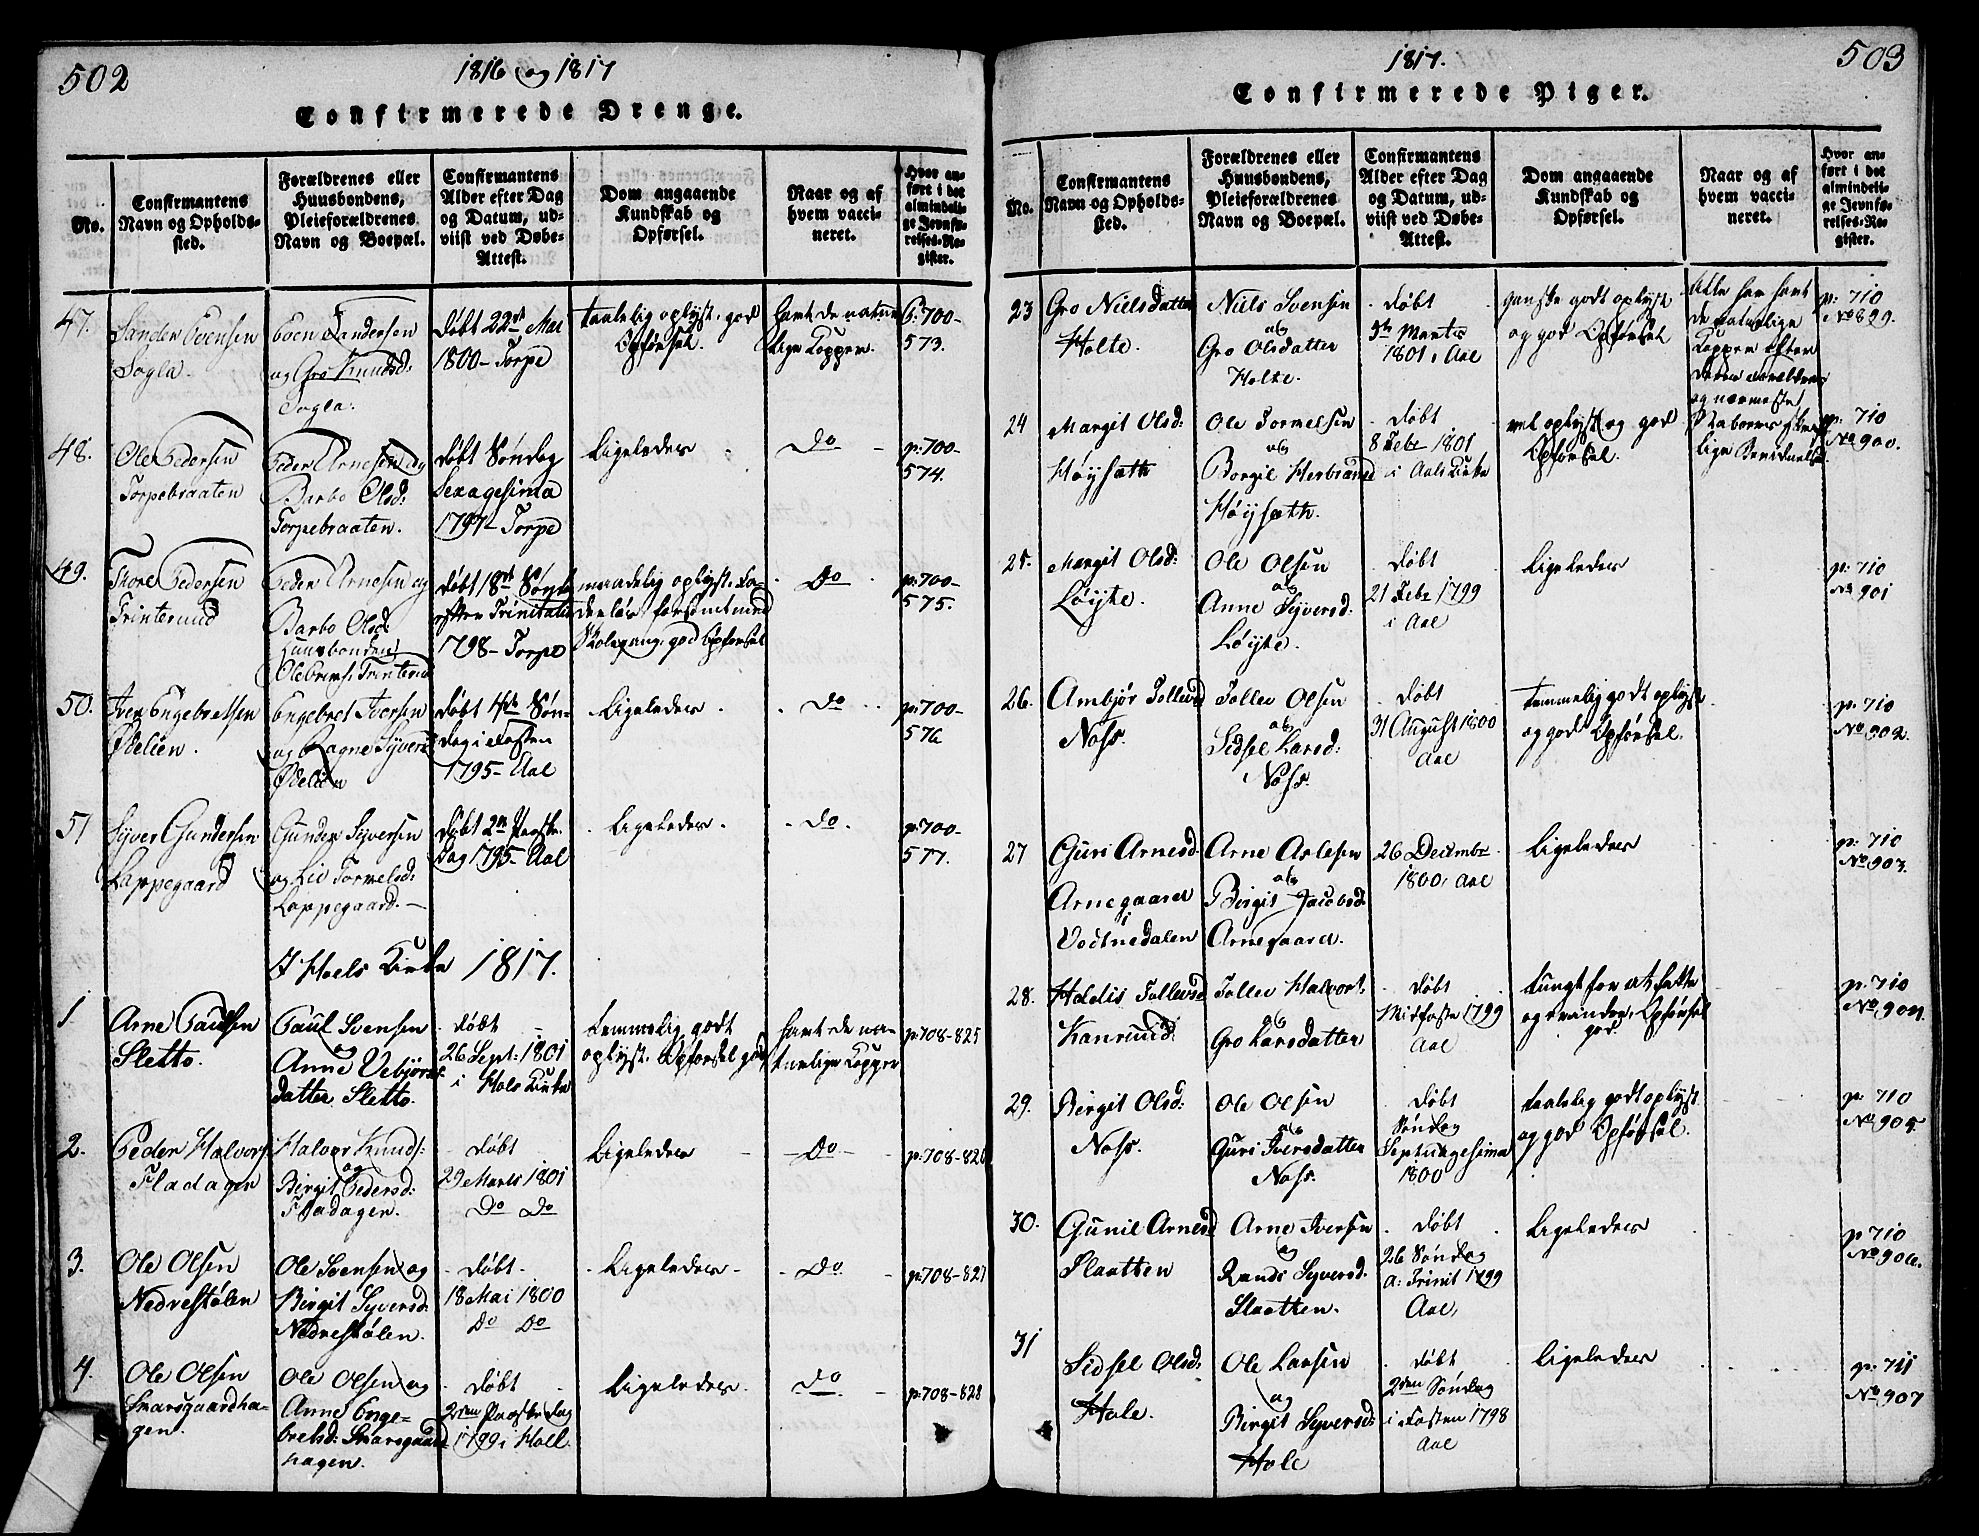 502
1816 og 1817
Confirmerede Drenge.
No.
Confirmantens
Navn og Opholds-
sted.
Forældrenes eller
Huusbondens,
Pleieforældrenes
Navn og Boepæl.
Confirmantens
Alder efter Dag
og Datum, ud-
viist ved Døbe-
Attest.
Dom angaaende
Kundskab og
Opførsel.
Naar og af
hvem vacci-
neret.
Hvor an-
ført i det
almindeli-
ge Jevnfø-
relses-Re-
gister.
47.
Sander Evensen
Sogla.
Even Sandersen
og Gro Knudsd:
Sogla.
døbt 22de Mai
1800 - Torpe
taalelig oplyst, god
Opførsel.
havt de natur-
lige Kopper.
p: 700-
573.
48.
Ole Pedersen
Torpebraaten
Peder Arnesen og
Barbo Olsd:
Torpebraaten.
døbt Søndag
Sexagesima
1797 - Torpe
Ligeledes
Do
p: 700-
574.
49.
Thore Pedersen
Trinterud
Peder Arnesen og
Barbo Olsd:
Huusbonden
Trinterud
døbt 18de Sønd:
efter Trinitatis
1798 - Torpe
maadelig oplyst.
forsømt med
Skolegang, god Opførsel
Do
p: 700-
575.
50.
Iver Engebretsen
Ødelien.
Engebret Iversen
og Ragne Syvers
Ødelien
døbt 4de Søn-
dag i Fasten
1795 - Aal
Ligeledes
Do
p: 700-
576
51
Syver Gundersen
Lappegaard
Gunder Syversen
og Liv Tormelsd:
Lappegaard.
døbt 2n Paaske-
dag 1795 - Aal
Ligeledes.
Do.
p: 700-
577.
I Hols Kirke 1817.
1
Arne Paulsen
Sletto.
Paul Svensen
og
Anne Vebjørns-
datter Sletto.
døbt
26 Sept: 1801
i Hols Kirke
temmelig godt
oplyst. Opførsel god
havt de na-
turlige Kopper
p: 708-825
2.
Peder Halvors:
Fladagen
Halvor Knuds:
og
Birgit Pedersd:
Fladagen.
døbt
29 Marts 1801
Do Do
Ligeledes
Do
p: 708-826
3.
Ole Olsen
Nedrestølen
Ole Svensen og
Birgit Syversd:
Nedrestølen.
døbt
18 Mai 1800
Do Do
Ligeledes
Do
p: 708-827
4.
Ole Olsen
Skarsgaardha-
gen.
Ole Olsen og
Anne Enge-
bretsd: Skarsgaard
hagen.
døbt
2den Paaskedag
1799 i Holl.
Ligeledes.
Do
p: 708-828
1817.
503
Confirmerede Piger.
No.
Confirmantens
Navn og Opholds-
sted.
Forældrenes eller
Huusbondens,
Pleieforældrenes
Navn og Boepæl.
Confirmantens
Alder efter Dag
og Datum, ud-
viist ved Døbe-
Attest.
Dom angaaende
Kundskab og
Opførsel.
Naar og af
hvem vacci-
neret.
Hvor an-
ført i det
almindeli-
ge Jevnfø-
relses-Re-
gister.
23
Gro Nielsdatter
Holte.
Niels Svensen
og
Gro Olsdatter
Holte.
døbt
Marts
1801, Aal
ganske godt oplyst
og god Opførsel
Alle har havt
de naturlige
Kopper efter
deres Forældres
og nærmeste
Naboers
lige Vidnesbyrd.
p: 710
No 899.
24
Margit Olsd:
Høysæth
Ole Tormelsen
og
Borgil Herbrandsd
Høysæth.
døbt
8 Febr 1801
i Aals Kirke
vel oplyst og god
Opførsel.
p: 710
No 900.
25.
Margit Olsd:
Løyte.
Ole Olsen
og
Anne Syversd:
Løyte.
døbt
21 Febr 1799
i Aal
Ligeledes
p: 710
No 901
26.
Ambjør Tollevsd
Noss.
Tollev Olsen
og
Sidsel Larsd:
Noss.
døbt
31 August 1800
Aal
temmelig godt oplyst
og god Opførsel.
p: 710
No 902.
27
Guri Arnesd:
Arnegaard
i
Vottnedalen
Arne Aslesen
og
Birgit Jacobsd:
Arnegaard.
26 Decembr
1800, Aal
Ligeledes
p: 710
No 903.
28.
Haldis Tollevsd
Kanrud
Tollev Halvors:
og
Gro Larsdatter
døbt
Midfaste 1799
Aal
tungt for at fatte
og erindre, Opførsel
god.
p: 710
No 904.
29.
Birgit Olsd:
Noss.
Ole Olsen
og
Guri Iversdatter
Noss.
døbt
Søndag
Septuagesima
1800
taalelig godt oplyst
og god Opførsel.
p: 710
No 905.
30.
Gunil Arnesd
Slaatten
Arne Iversen
og
Randi Syversd.
Slaatten.
døbt
26 Søndag
a: Trinit 1799
Aal,
Ligeledes
p 710
No 906.
31
Sidsel Olsd:
Hole.
Ole Larsen
og
Birgit Syversd:
Hole
døbt
2den Søndag
i Fasten 1798
Aal
Ligeledes
p: 711
No 907